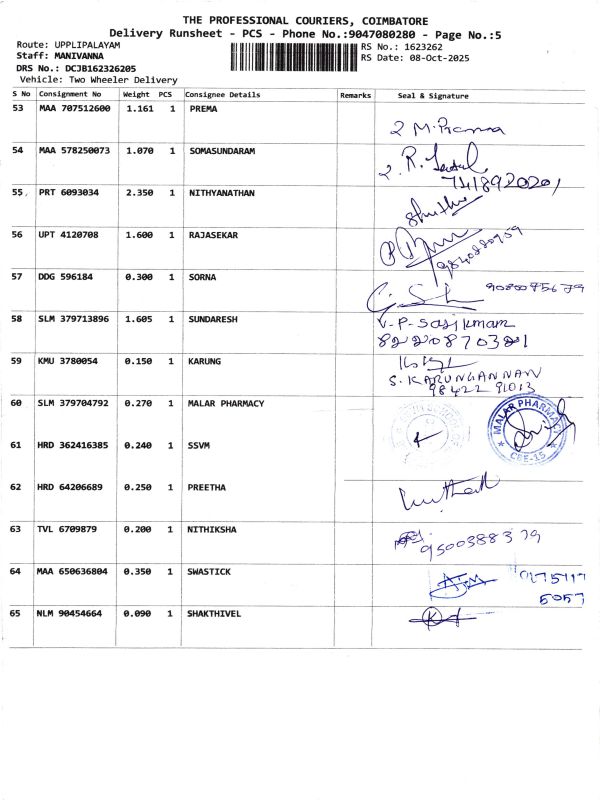 THE PROFESSIONAL COURIERS, COIMBATORE
Delivery Runsheet - PCS - Phone No.:9047080280 - Page No.:5
Route: UPPLIPALAYAM
RS No.: 1623262
Staff: MANIVANNA
RS Date: 08-Oct-2025
DRS No.: DCJB162326205
Vehicle: Two Wheeler Delivery
S No Consignment No Weight PCS Consignee Details Remarks Seal & Signature
53 MAA 707512600 1.161 1 PREMA
54 MAA 578250073 1.070 1 SOMASUNDARAM
55 PRT 6093034 2.350 1 NITHYANATHAN
56 UPT 4120708 1.600 1 RAJASEKAR
57 DDG 596184 0.300 1 SORNA
58 SLM 379713896 1.605 1 SUNDARESH
V-P-Sasikmam
59 KMU 3780054 0.150 1 KARUNG
S. KARUNGANNAN
98422 91013
60 SLM 379704792 0.270 1 MALAR PHARMACY
MALAR PHARMACY
CBE-15
61 HRD 362416385 0.240 1 SSVM
62 HRD 64206689 0.250 1 PREETHA
63 TVL 6709879 0.200 1 NITHIKSHA
9500388379
64 MAA 650636804 0.350 1 SWASTICK
5057
65 NLM 90454664 0.090 1 SHAKTHIVEL